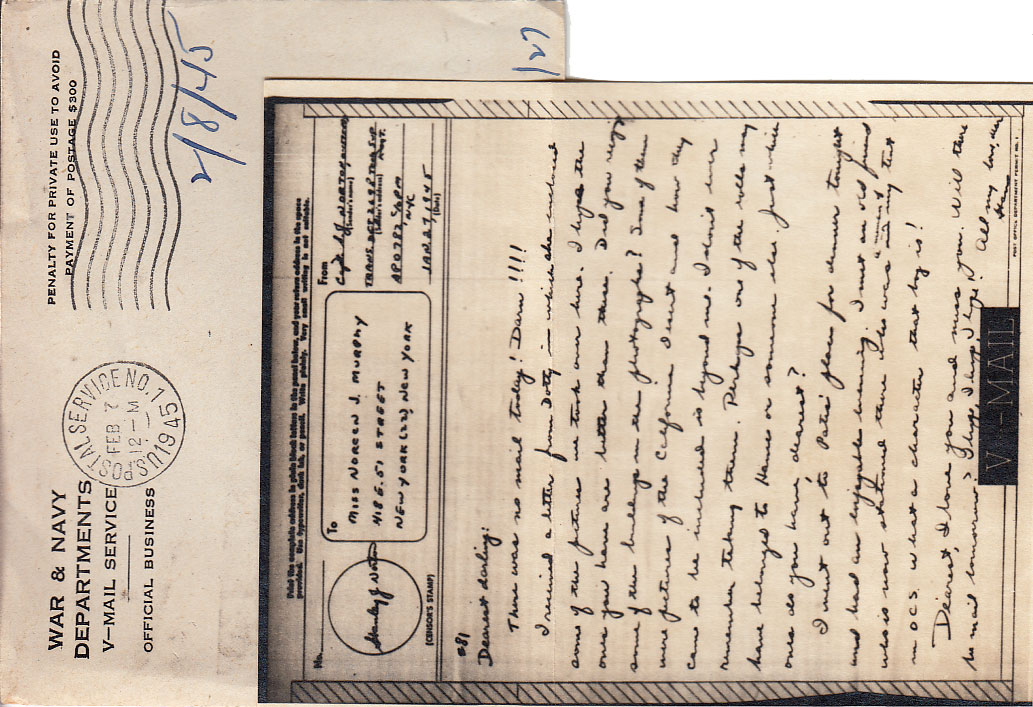 WAR & NAVY
DEPARTMENTS
V-MAIL SERVICE
OFFICIAL BUSINESS
U.S. POSTAL SERVICE NO. 1
FEB 7
12-M
1945
PENALTY FOR PRIVATE USE TO AVOID
PAYMENT OF POSTAGE $300
2/8/45
1/27
Print the complete address in plain block letters in the panel below, and your return address in the space
provided. Use typewriter, dark ink, or pencil. Write plainly. Very small writing is not suitable.
No.
Stanley J. Norton
(CENSOR'S STAMP)
To
MISS NOREEN J. MURPHY
418 E. 51 STREET
NEW YORK (22), NEW YORK
From
NORTON
(Sender's name)
(Sender's address)
APO 782 % PM
NYC
JAN 27, 1945
(Date)
#81
Dearest darling:
There was no mail today! Darn!!!!
I received a letter from Dotty in which she enclosed
some of the pictures we took over here. I hope the
ones you have are better than these. Did you recognize
some of the buildings in the photographs? Some of them
were pictures of the California desert and how they
came to be included is beyond me. I don't even
remember taking them. Perhaps one of the rolls may
have belonged to Hames or someone else. Just which
ones do you have, dearest?
I went out to Patris' place for dinner tonight
and had an enjoyable evening. I met an old friend
who is now stationed there who was in my tent
in OCS. What a character that boy is!
Dearest, I love you and miss you. Will there
be mail tomorrow? I hope, I hope, I hope! All my love,
Stan
V···—MAIL
POST OFFICE DEPARTMENT PERMIT NO. 1